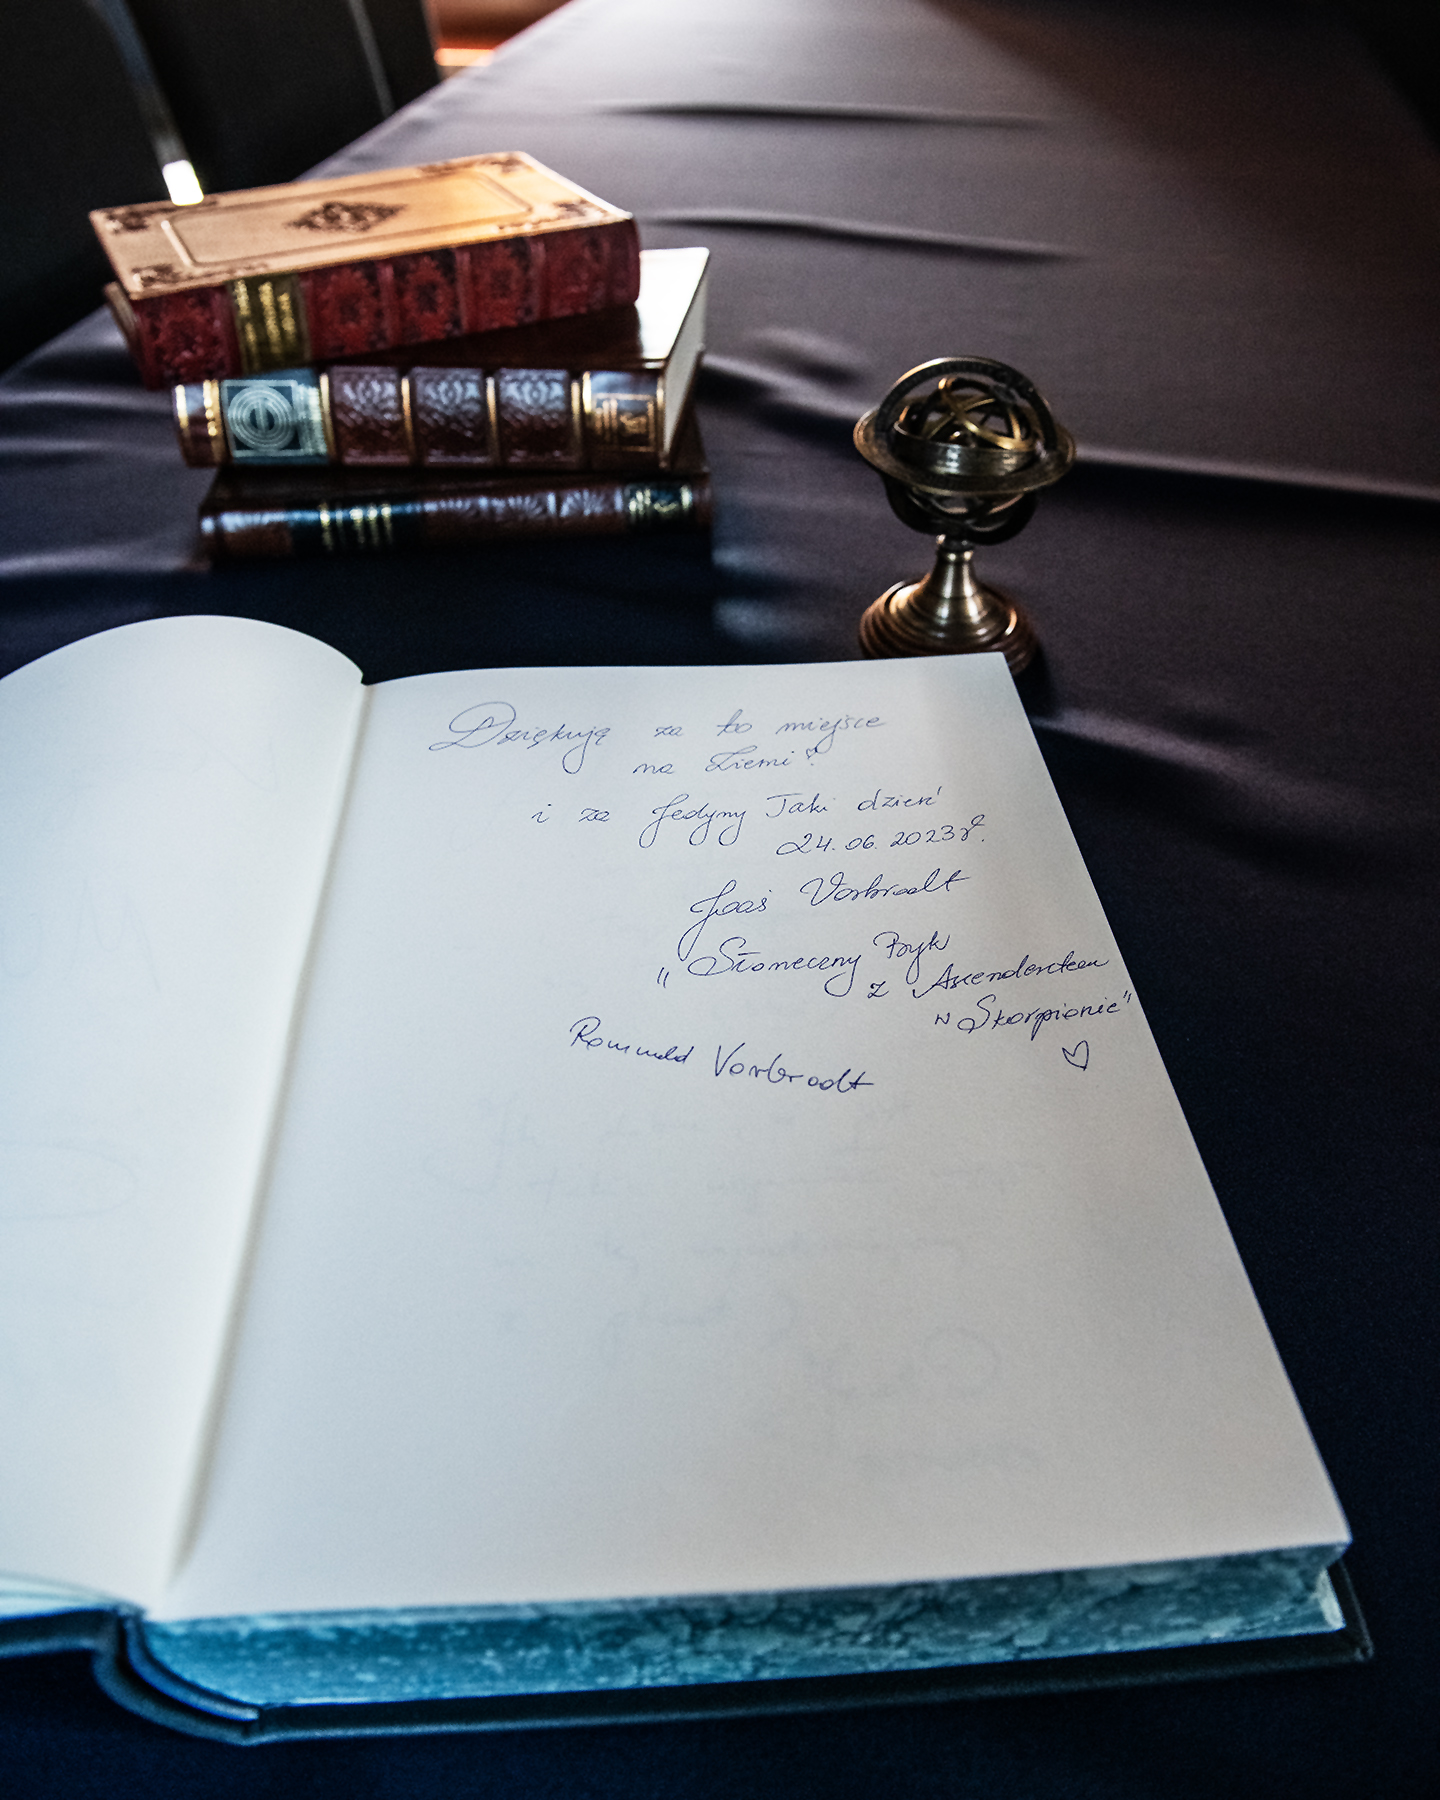 Dziękuję za to miejsce
na Ziemi
i za Jedyny Taki dzień
24.06.2023 r.
Joaś Vorbrodt
"Słoneczny Byk
z Ascendentem
w Skorpionie"
Romuald Vorbrodt